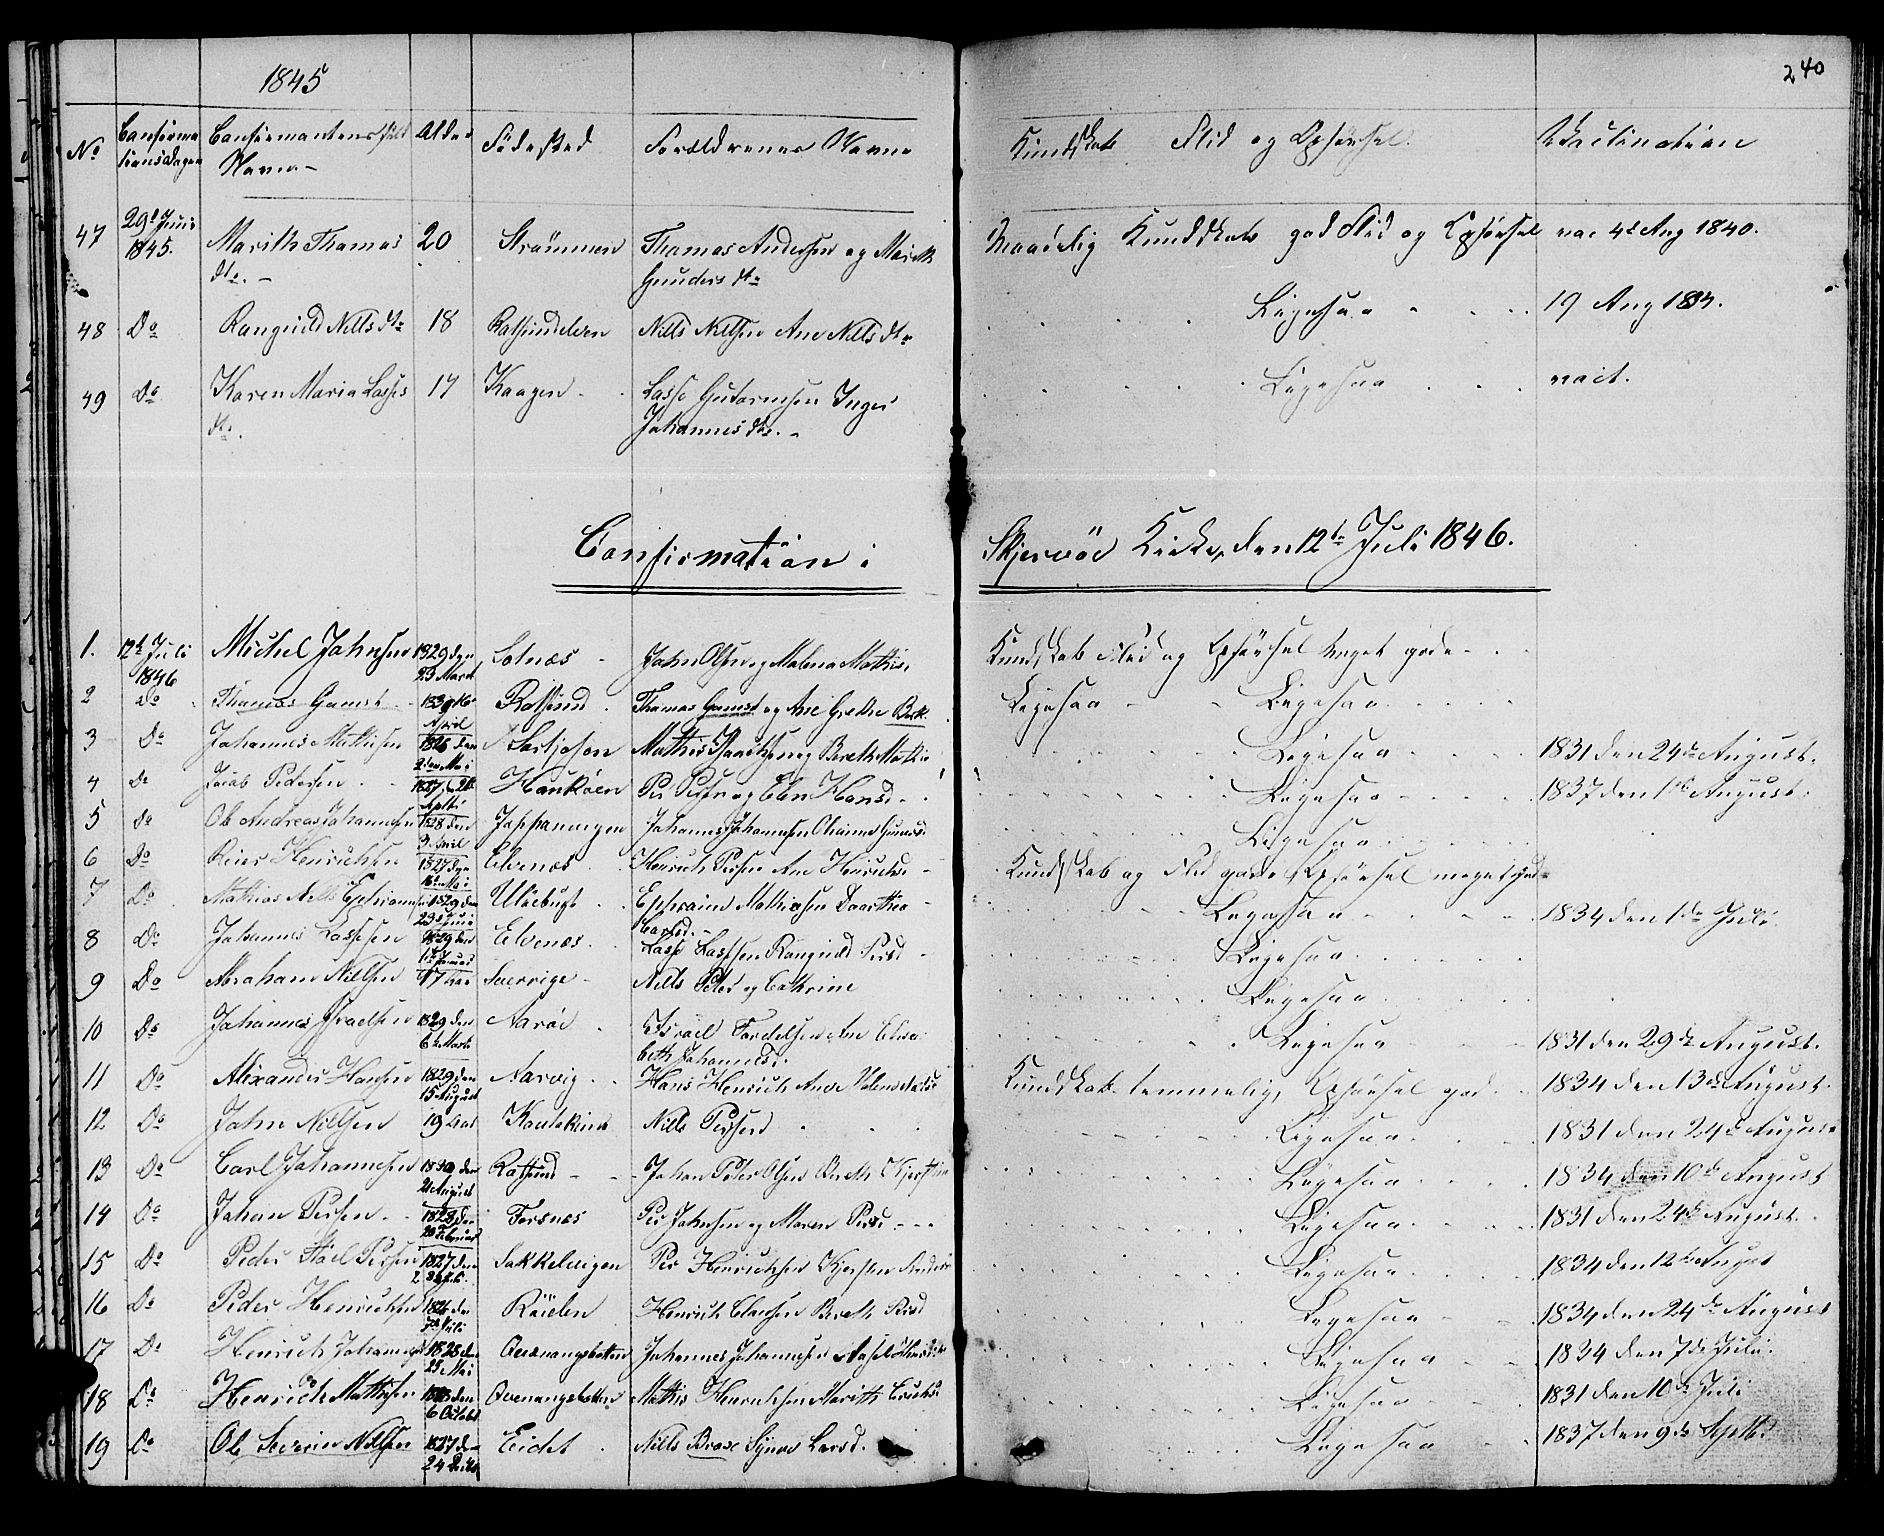 1845
240
No Confirmations Dagen Confirmantens fulde Navn Alder Födested Forældrenes Navne Kundskab Flid og Opförsel. Vaccination
47 29d Juni 1845. Marith Thomas dtr. 20 Strömmen Thomas Andersen og Marith Gunders dtr Maadelig Kundskab god Flid og Opförsel vac 4d Aug 1840.
48 Do Rangnild Nills dtr 18 Rotsundelven Nills Nillsen Ane Nills dtr Ligesaa 19 Aug
49 Do Karen Maria Lasses dtr. 17 Kaagen Lasse Gutormsen Inger Johannes dtr. Ligesaa vacc.
Confirmation i Skjervöe Kirke, den 12te Juli 1846.
1. 12te Juli 1846 Michel Johnsen 1829 den 23 Marts Solnæs John Olsen og Malena Mathis. Kundskab Flid og Opförsel meget gode
2 Do Thomas Gamst 16 April Rotsund Thomas Gamst og Ane Grethe Beck Ligesaa Ligesaa
3 Do Johannes Mathisen den Mai Mathis og Bereth Mathis Ligesaa 1831 den 24de August.
4 Do Jacob Pedersen 1827 Septbr Haukøen Per og Elen Hansd Ligesaa 1837 den 1ste August.
5 Do Ole Andreas Johannesen 1828 den 3 April Jøppavongen Johannes Johannesen Ligesaa
6 Do Reier Henrichsen 1827 den 16 Mai Elvenæs Henrich Persen Ane Henrichsd Kundskab og Flid gode Opförsel meget god
7 Do Mathias Nills Ephraimsen 1829 den 29 Juni Uløebugt Ephraim Mathiasen Dorthea Larsd. Ligesaa 1834 den 1de Juli
8 Do Johannes Lassesen 1829 den Januar Elvenæs Lasse Lassesen Rangnild Persd Ligesaa
9 Do Abraham Nillsen 17 Aar Sverrige Nills Peter og Cathrine Ligesaa
10 Do Johannes Israelsen 1829 den 6te Marts Aaröe Israel Ane Elisabeth Johannesd. Ligesaa 1831 den 29de August.
11 Do Alexander Hansen 1829 den 15 August Aarvig Hans Henrich Ane Nilsd Kundskab temmelig, Opförsel god 1834 den 13de August.
12 Do John Nillsen 19 Aar Koutokeino Nills Persen Ligesaa 1831 den 24de August
13 Do Carl Johannesen den 21 August Rotsund Johan Peter Olsen Bereth Kjerstine Ligesaa 1834 den 10de August
14 Do Johan Persen 1828 den 28 Februar Forsnæs Per Johnsen og Maren Persd Ligesaa 1831 den 24de August.
15 Do Peder Persen 1827 den 2 Septb. Sækkelvigen Per Henrichsen Kjersten Anders Ligesaa 1834 den 12te August
16 Do Peder Henrichsen 1826 den Juli Röielen Henrich Clausen Bereth Persd Ligesaa 1834 den 24de August
17 Do Henrich Johannesen 1828 den 25 Mai Qvænangsbotten Johannes Johannesen Ligesaa 1834 den 7de Juli.
18 Do Henrich Mathisen den 6 October Qvænangsbotten Mathis Henrichsen Marith Erichsd Ligesaa 1831 den 10de Juli
19 Do Ole Severin Nillsen 1827 den 24 Eidet Nills Broxe Synnev Larsd. Ligesaa 1837 den 9de Septbr